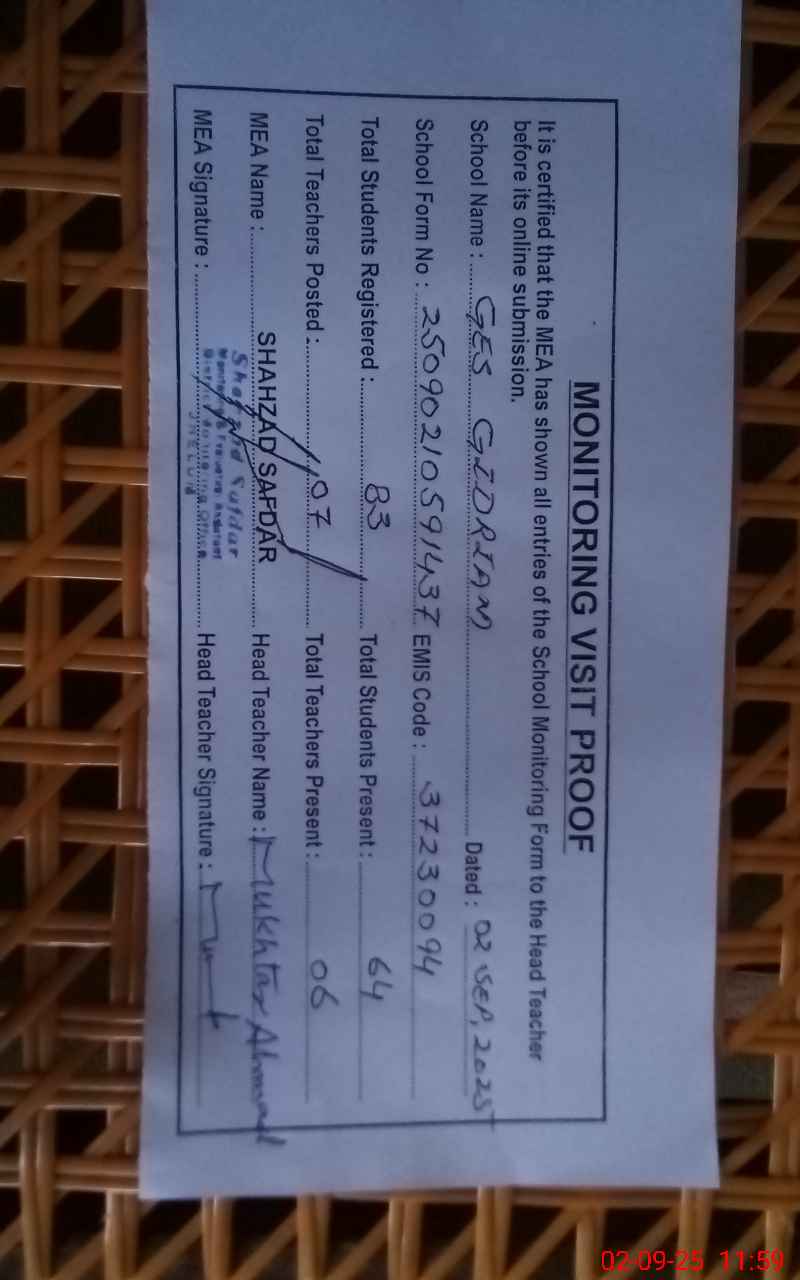 MONITORING VISIT PROOF
It is certified that the MEA has shown all entries of the School Monitoring Form to the Head Teacher
before its online submission.
School Name : GES GIDRIAN Dated : 02 SEP, 2025
School Form No : 25090210591437 EMIS Code : 37230094
Total Students Registered : 83 Total Students Present : 64
Total Teachers Posted : 07 Total Teachers Present : 06
MEA Name : SHAHZAD SAFDAR Head Teacher Name : Mukhtar Ahmad
MEA Signature : Head Teacher Signature :
Shahzad Safdar
Monitoring & Evaluation Assistant
District Monitoring Office
JHELUM
02-09-25 11:59